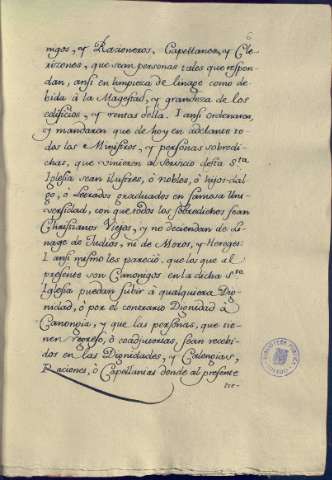 nigos, y Razioneros, Capellanes, y Cle-
rizones, que sean personas tales que respon-
dan, ansi en limpieza de linage como de-
bida à la Magestad, y grandeza de los
edificios, y rentas della. I ansi ordenaron,
y mandaron que de hoy en adelante to-
dos los Ministros, y personas sobredi-
chas, que vinieren al servicio desta Sta
Iglesia sean ilustres, ò nobles, ò hijos-dal-
go, ò letrados graduados en famosa Uni-
versidad, con que todos los sobredichos sean
Christianos Viejos, y no deciendan de Li-
nage de Iudios, ni de Moros, y Hereges:
I ansi mismo les pareciò que los que al
presente son Canonigos en la dicha Sta
Iglesia puedan subir à qualquiera Dig-
nidad, ò por el contrario Dignidad à
Canongia, y que las personas, que tie-
nen regreso, ò coadjutorias, sean recebi-
dos en las Dignidades, y Calongias,
Raciones, ò Capellanias donde al presente
tie-
BIBLIOTECA PUBLICA
TOLEDO